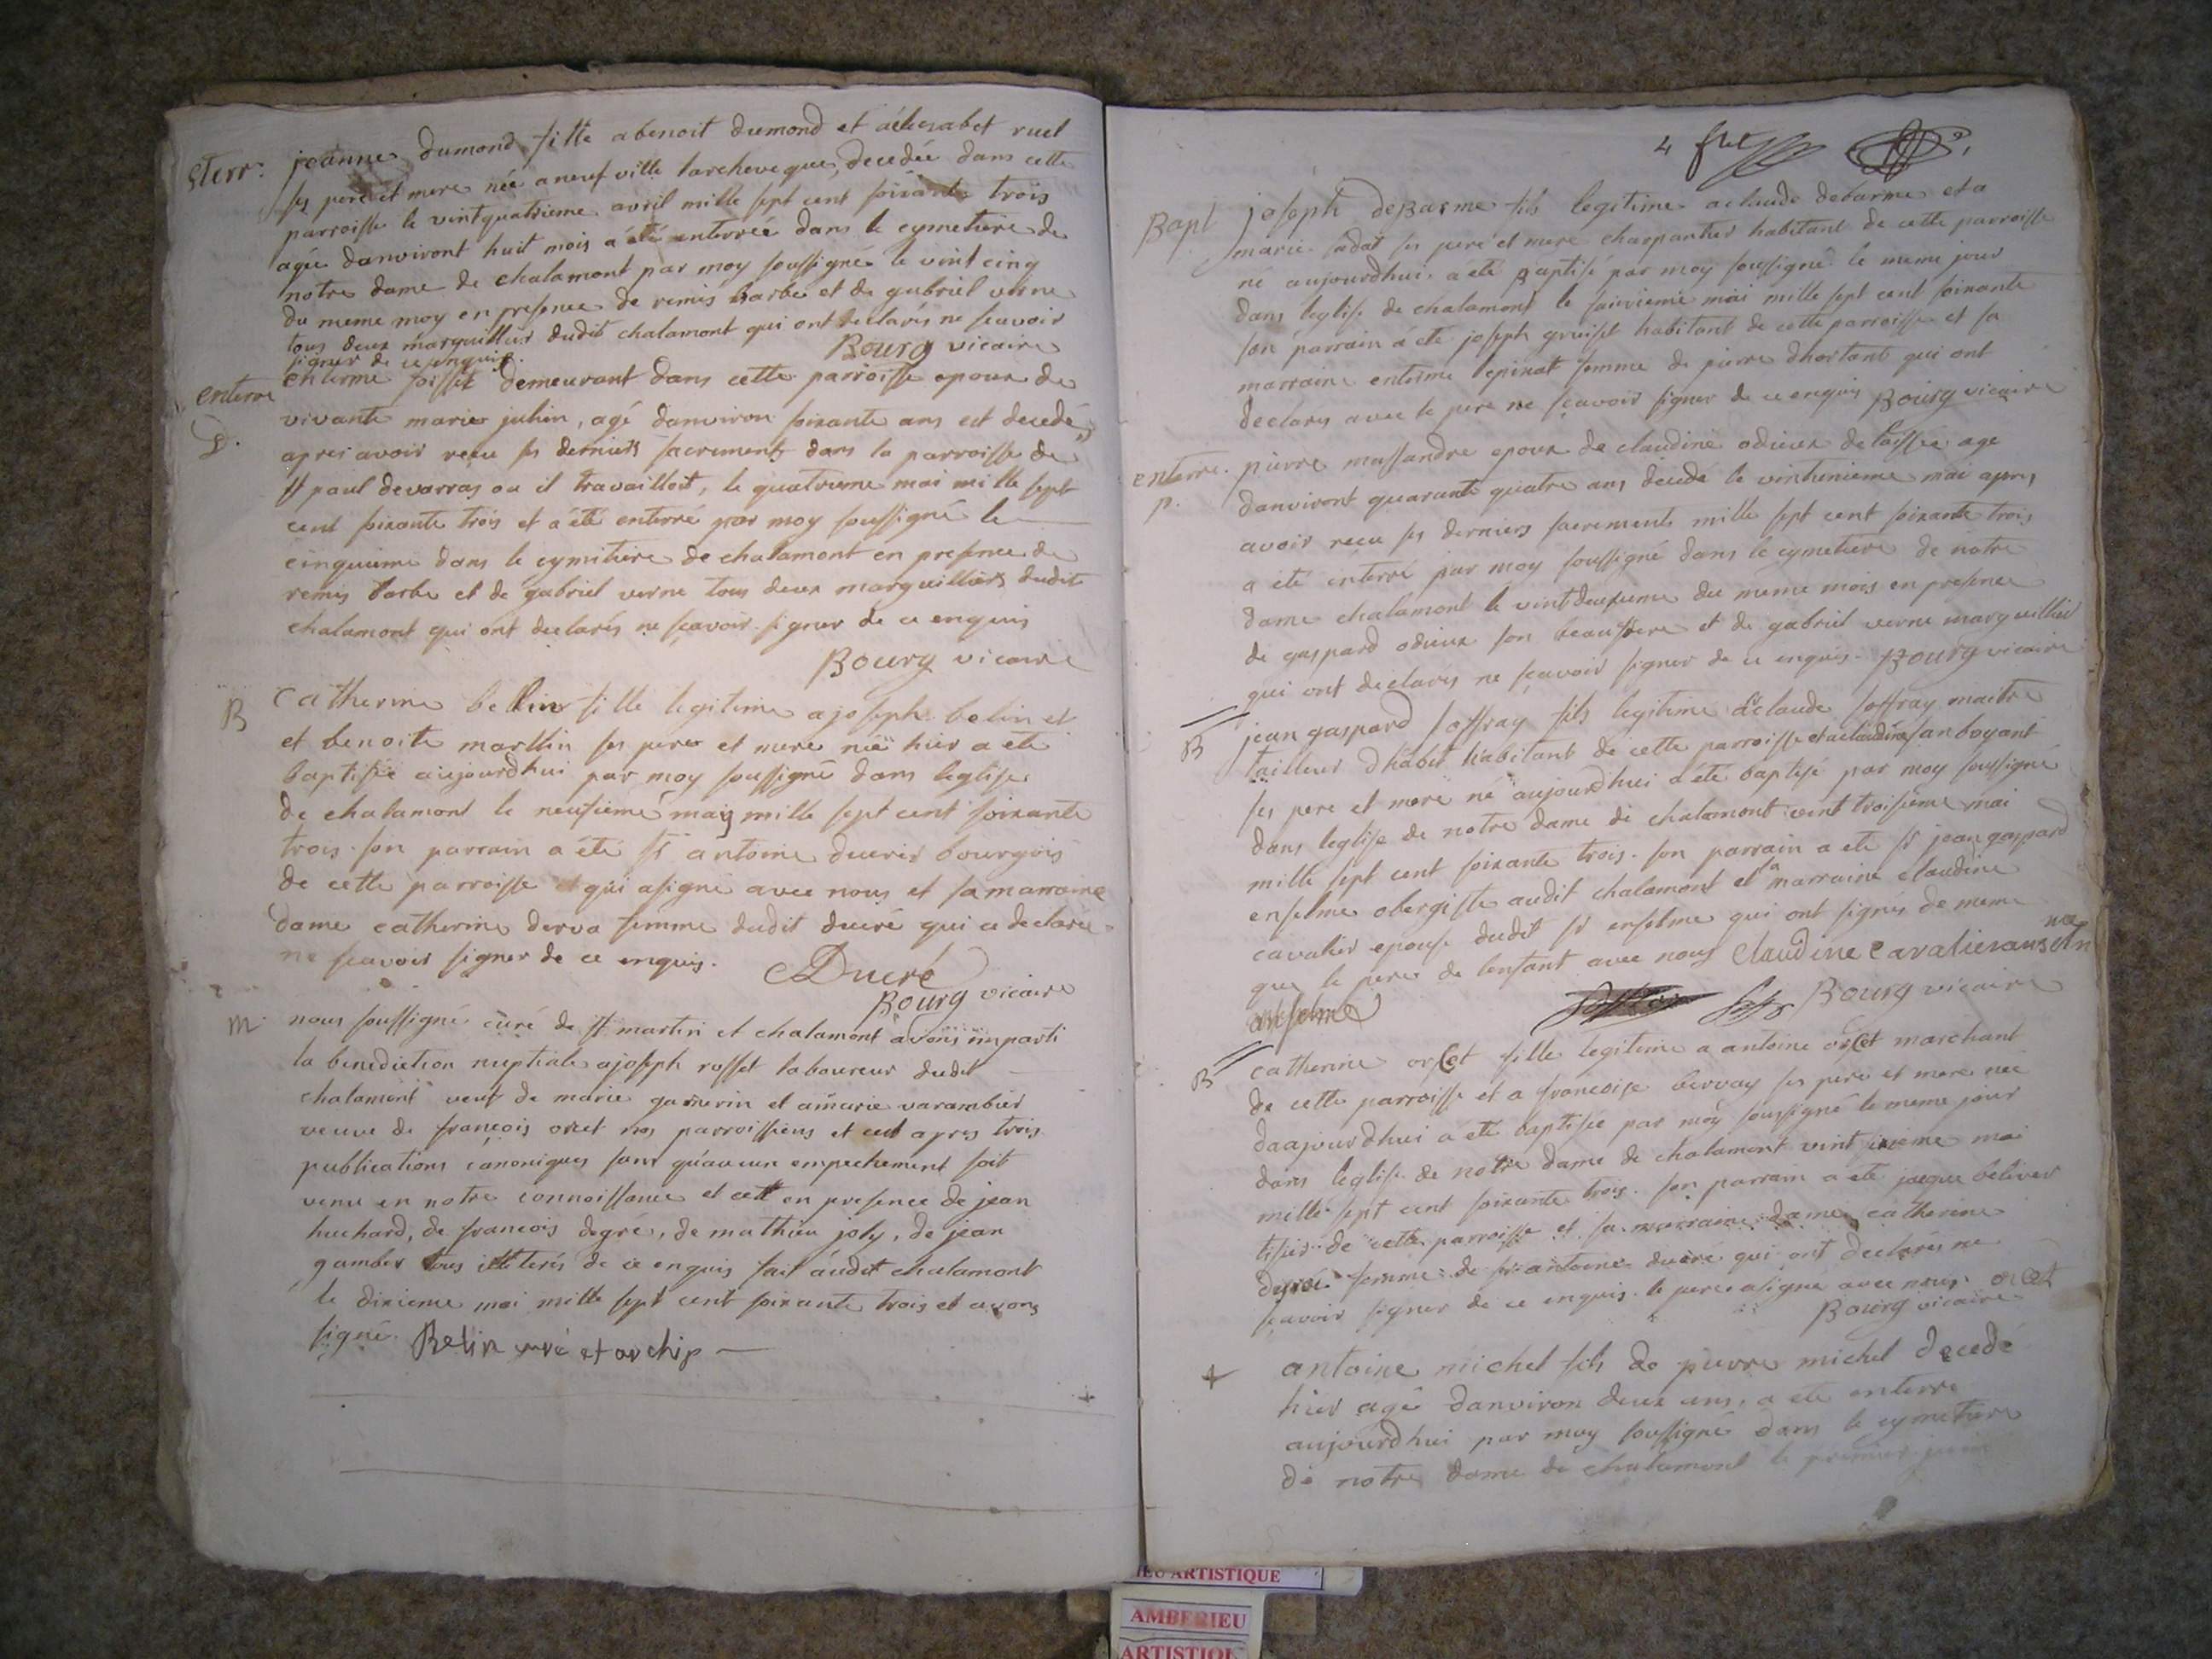 Eterr. jeanne dumond fille a benoit dumond et a elizabet ruel
ses pere et mere née a neufville larcheveque, decedée dans cette
parroisse le vintquatrieme avril mille sept cent soixante trois
agée danviront huit mois a été enterrée dans le cymetiere de
notre dame de chalamont par moy soussigné le vint cinq
du meme moy en presence de remis barbe et de gabriel verne
tous deux marguilliers dudit chalamont qui ont declarés ne scavoir
signer de ce enquis. Bourg vicaire
enterre enterme poisset demeurant dans cette parroisse epoux de
vivante marie julin, agé danviron soixante ans est decedé
D. apres avoir recu ses derniers sacrements dans la parroisse de
st paul devarras ou il travailloit, le quatrieme mai mille sept
cent soixante trois et a été enterré par moy soussigné le
cinquieme dans le cymitiere de chalamont en presence de
remis barbe et de gabriel verne tous deux marguilliers dudit
chalamont qui ont declarés ne scavoir signer de ce enquis
Bourg vicaire
B Catherine bellin fille legitime a joseph belin et
et benoite marllin ses pere et mere née hier a eté
baptisée aujourdhui par moy soussigné dans leglise
de chalamont le neufieme may mille sept cent soixante
trois. son parrain a été sr antoine ducrés bourgois
de cette parroisse qui a signé avec nous et sa marraine
dame catherine derva femme dudit ducré qui a declarée
ne scavoir signer de ce enquis. Ducré
Bourg vicaire
m. nous soussigné curé de st martin et chalamont avons imparti
la benediction nuptiale a joseph rosset laboureur dudit
chalamont veuf de marie garnerin et a marie varambier
veuve de françois orcet nos parroissiens et cest apres trois
publications canoniques sans quaucun empechement soit
venu en notre connoissance et cest en presence de jean
huchard, de francois degré, de mathieu joly, de jean
gamber tous illiterés de ce enquis fait audit chalamont
le dixieme mai mille sept cent soixante trois et avons
signé. Belin curé et archip
4
Bapt joseph debarme fils legitime a claude debarme et a
marie ses pere et mere charpantier habitant de cette parroisse
né aujourdhui a été baptisé par moy soussigné le meme jour
dans leglise de chalamont le mai mille sept cent soixante
son parrain a été joseph habitant de cette parroisse et sa
marraine enterme epinat femme de pierre dhortant qui ont
declarés avec le pere ne sçavoir signer de ce enquis Bourg vicaire
enterre. pierre massandre epoux de claudine odieux delaissée age
p. danviront quarante quatre ans decedé le vintunieme mai apres
avoir recu ses derniers sacrements mille sept cent soixante trois
a été enterré par moy soussigné dans le cymetiere de notre
dame chalamont le vintdeuxieme du meme mois en presence
de gaspard odieux son beaufrere et de gabriel verne marguillier
qui ont declarés ne sçavoir signer de ce enquis. Bourg vicaire
B jean gaspard soffray fils legitime a claude soffray maitre
tailleur dhabit habitant de cette parroisse et a claudine sanboyant
ses pere et mere né aujourdhui a été baptisé par moy soussigné
dans leglise de notre dame de chalamont vint troisieme mai
mille sept cent soixante trois. son parrain a ete sr jean gaspard
enselme obergiste audit chalamont et sa marraine claudine
cavalier epouse dudit sr enselme qui ont signés de meme
que le pere de lenfant avec nous Claudine Cavalier
anselme Bourg vicaire
B catherine orset fille legitime a antoine orset marchant
de cette parroisse et a francoise bervay ses pere et mere née
daajourdhui a ete baptisée par moy soussigné le meme jour
dans leglise de notre dame de chalamont vint mai
mille sept cent soixante trois. son parrain a ete jaque belever
tisier de cette parroisse et sa marraine dame catherine
femme de sr antoine ducre qui ont declarés ne
scavoir signer de ce enquis. le pere a signé avec nous. orcet
Bourg vicaire
+ antoine michel fils de pierre michel decedé
hier agé danviron deux ans, a ete enterre
aujourdhui par moy soussigné dans le cymetiere
de notre dame de chalamont le premier juin
IEU ARTISTIQUE
AMBERIEU